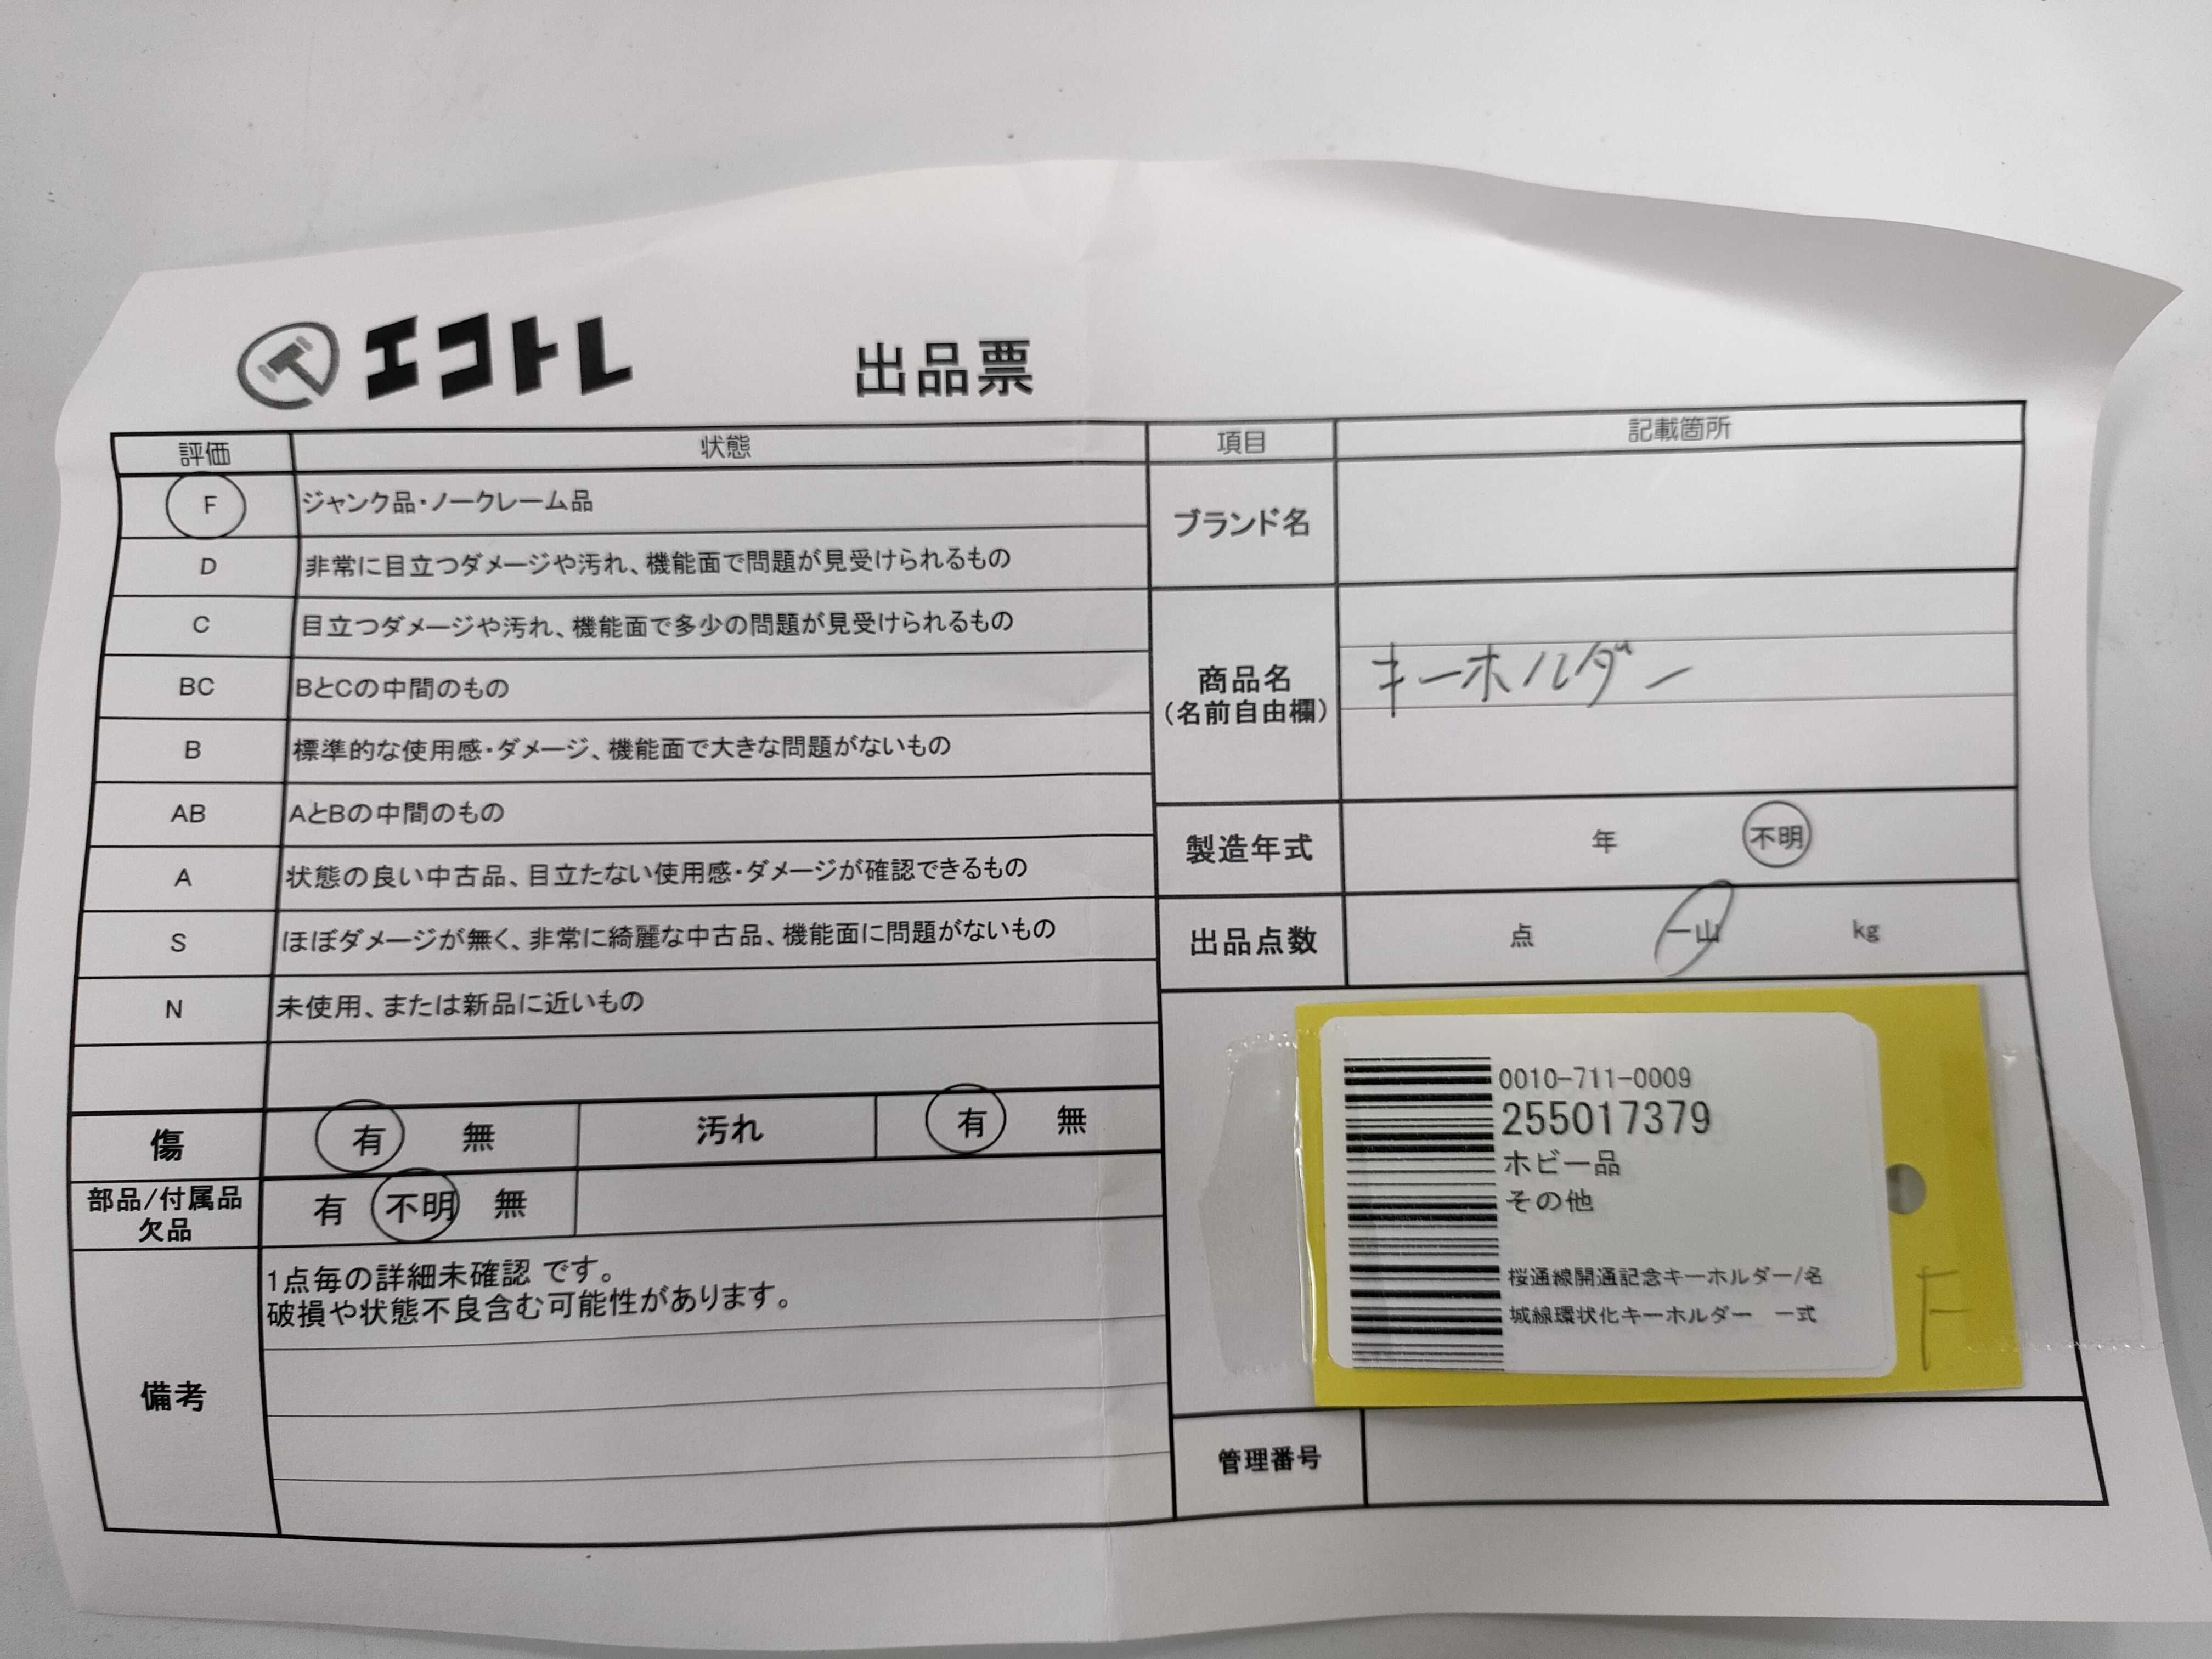 エコトレ 出品票
評価 状態
F ジャンク品・ノークレーム品
D 非常に目立つダメージや汚れ、機能面で問題が見受けられるもの
C 目立つダメージや汚れ、機能面で多少の問題が見受けられるもの
BC BとCの中間のもの
B 標準的な使用感・ダメージ、機能面で大きな問題がないもの
AB AとBの中間のもの
A 状態の良い中古品、目立たない使用感・ダメージが確認できるもの
S ほぼダメージが無く、非常に綺麗な中古品、機能面に問題がないもの
N 未使用、または新品に近いもの
傷 有 無 汚れ 有 無
部品/付属品
欠品
有 不明 無
備考
1点毎の詳細未確認 です。
破損や状態不良含む可能性があります。
項目 記載箇所
ブランド名
商品名
(名前自由欄)
キーホルダー
製造年式 年 不明
出品点数 点 一山 kg
0010-711-0009
255017379
ホビー品
その他
桜通線開通記念キーホルダー/名
城線環状化キーホルダー 一式
F
管理番号